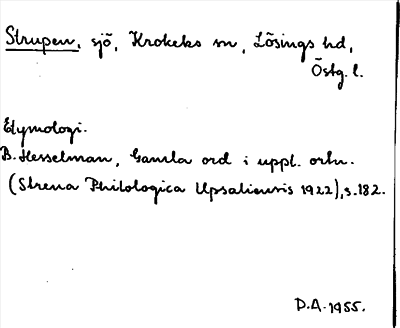 Strupen, sjö, Krokeks sn, Lösings hd,
Östg. l.
Etymologi.
B. Hesselman, Gamla ord i uppl. ortn.
(Strena Philologica Upsaliensis 1922), s. 182.
D.A. 1955.